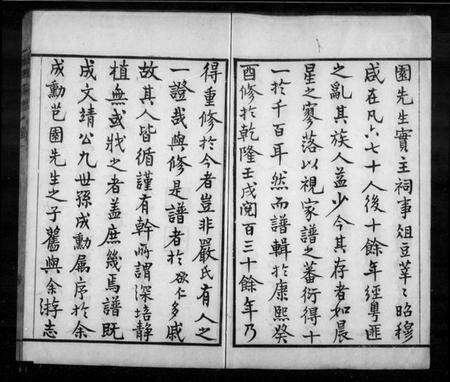 園先生實主祠事俎豆莘莘昭穆
咸在凡六七十人後十餘年經粵匪
之亂其族人益少今其存者如晨
星之寥落以視家譜之蕃衍得十
一於千百耳然而譜輯於康熙癸
酉修於乾隆壬戌閱百三十餘年乃
得重修於今者豈非嚴氏有人之
一證哉與修是譜者於欲仁多戚
故其人皆循謹有幹所謂深培靜
植無或戕之者益庶幾焉譜既
成文靖公九世孫成勳属序於余
成勳芑園先生之子舊與余游志